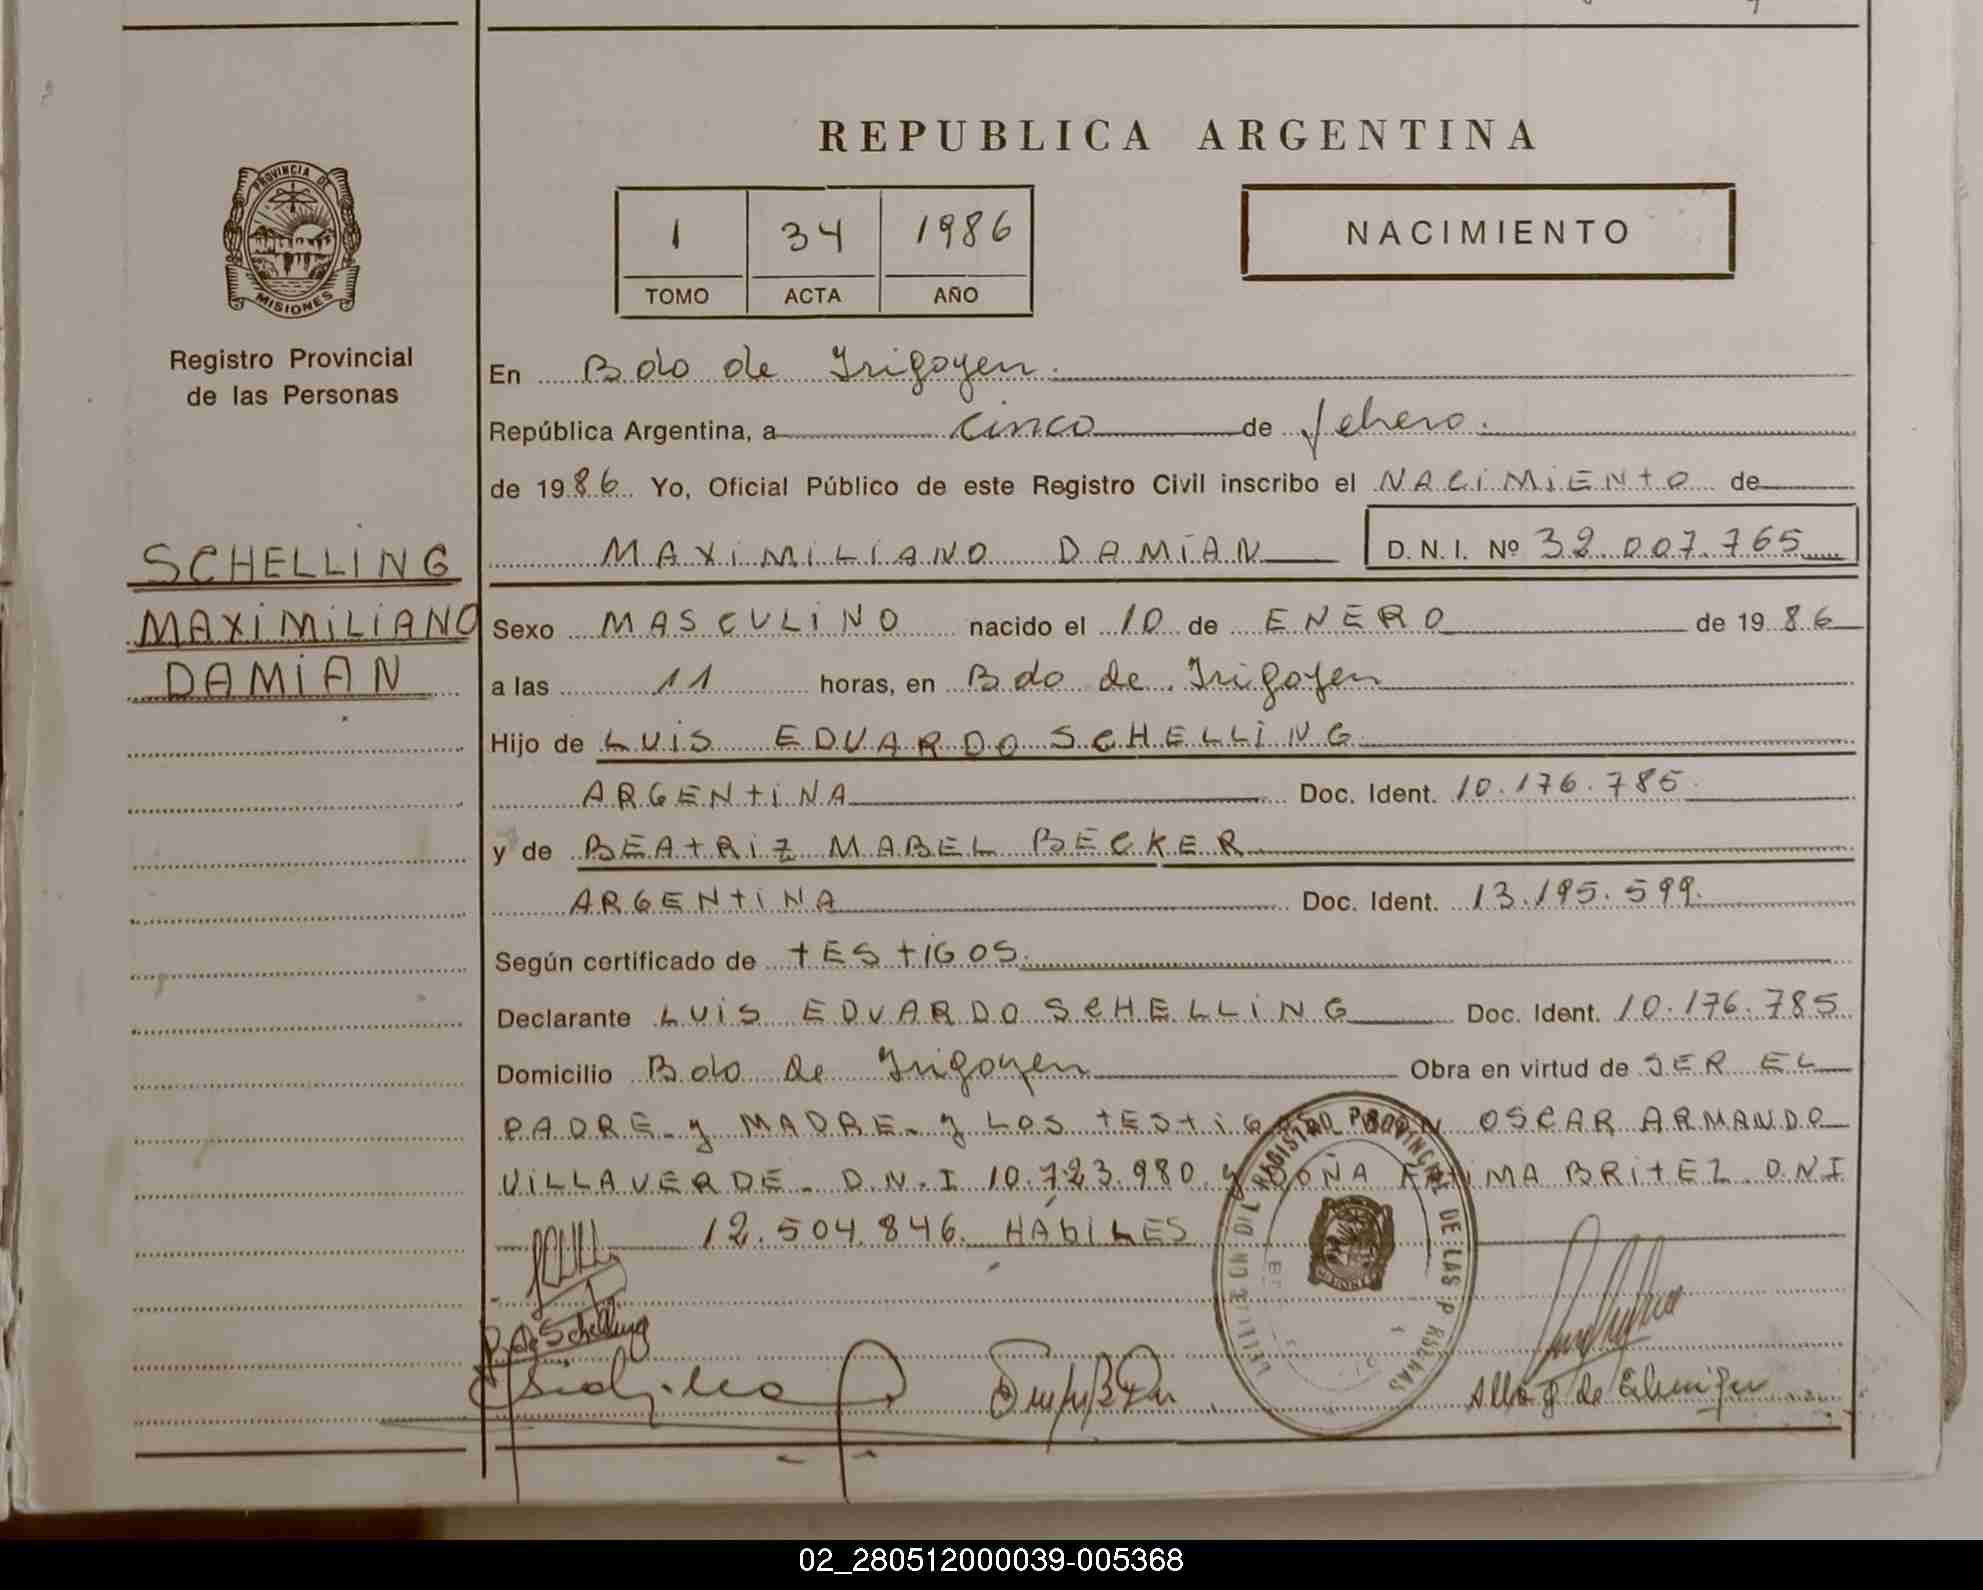 REPUBLICA ARGENTINA
PROVINCIA DE
MISIONES
Registro Provincial
de las Personas
1 34 1986
TOMO ACTA AÑO
NACIMIENTO
En Bdo de Irigoyen.
República Argentina, a cinco de febrero.
de 1986 Yo, Oficial Público de este Registro Civil inscribo el NACIMIENTO de
MAXIMILIANO DAMIAN D.N.I. Nº 32.007.765
SCHELLING
MAXIMILIANO
DAMIAN
Sexo MASCULINO nacido el 10 de ENERO de 1986
a las 11 horas, en Bdo de Irigoyen
Hijo de LUIS EDUARDO SCHELLING
ARGENTINA Doc. Ident. 10.176.785.
y de BEATRIZ MABEL BECKER
ARGENTINA Doc. Ident. 13.195.599.
Según certificado de TESTIGOS.
Declarante LUIS EDUARDO SCHELLING Doc. Ident. 10.176.785
Domicilio Bdo de Irigoyen Obra en virtud de SER EL
PADRE y MADRE y LOS OSCAR ARMANDO
VILLAVERDE D.N.I 10.723.980 y DOÑA BRITEZ DNI
12.504.846. HÁBILES
REGISTRO PROVINCIAL DE LAS
B. de Schelling
02_280512000039-005368